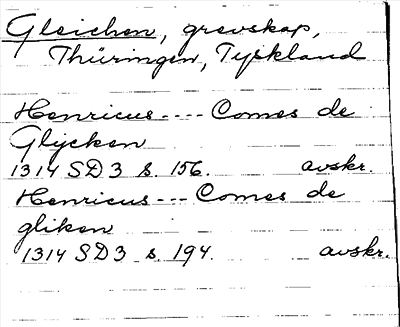 Gleichen, grevskap,
Thüringen, Tyskland
Henricus---- Comes de
Glijcken
1314 SD 3 s. 156. avskr.
Henricus--- Comes de
gliken
1314 SD 3 s. 194. avskr.